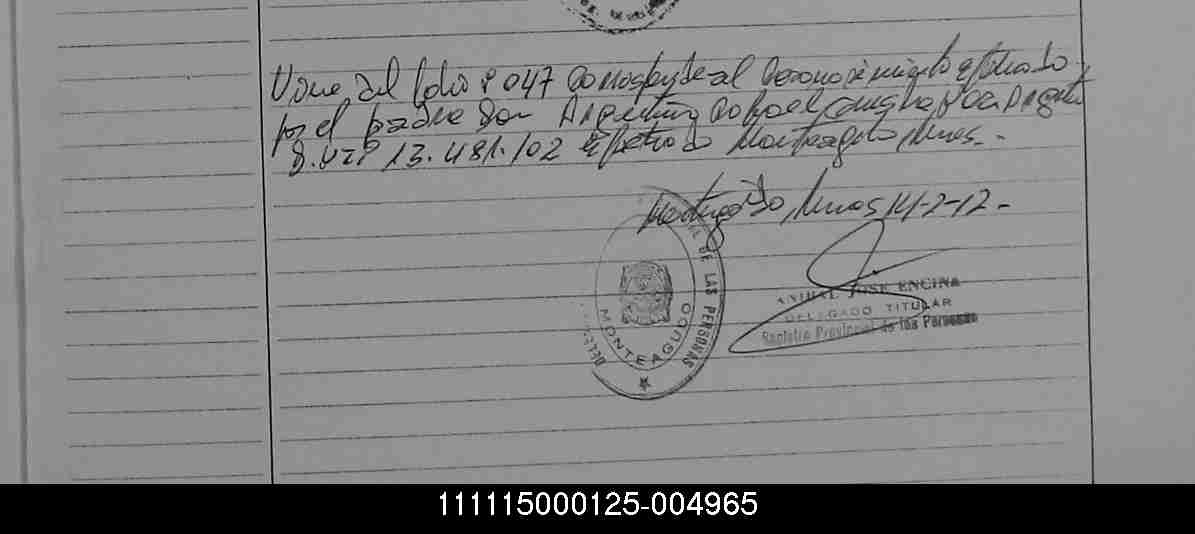 Viene del folio Nº 047 Corresponde al Reconocimiento efectuado
por el padre Don Argentino Rafael
D.N.Iº 13.481.102 Monteagudo, Mnes.-
Monteagudo, Mnes 14-2-12.-
DE LAS PERSONAS
MONTEAGUDO
ANIBAL JOSE ENCINA
DELEGADO TITULAR
Registro Provincial de las Personas
111115000125-004965